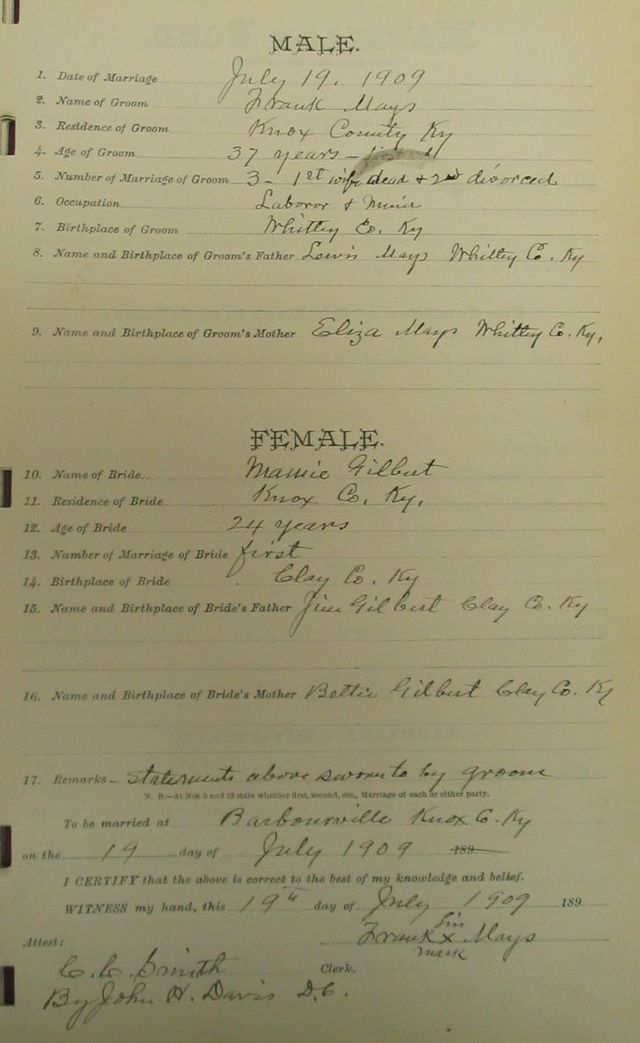 MALE.
1. Date of Marriage July 19, 1909
2. Name of Groom Frank Mays
3. Residence of Groom Knox County Ky
4. Age of Groom 37 years –
5. Number of Marriage of Groom 3 – 1st wife dead & 2nd divorced
6. Occupation Laboror & Minir
7. Birthplace of Groom Whitley Co. Ky
8. Name and Birthplace of Groom's Father Lewis Mays Whitley C. Ky
9. Name and Birthplace of Groom's Mother Eliza Mays Whitley Co. Ky.
FEMALE.
10. Name of Bride. Mamie Gilbert
11. Residence of Bride Knox Co. Ky.
12. Age of Bride 24 years
13. Number of Marriage of Bride first
14. Birthplace of Bride Clay Co. Ky
15. Name and Birthplace of Bride's Father Jim Gilbert Clay Co. Ky
16. Name and Birthplace of Bride's Mother Bettie Gilbert Clay Co. Ky
17. Remarks – Statements above sworn to by groom
N. B.—At Nos. 5 and 13 state whether first, second, etc., Marriage of each or either party.
To be married at Barbourville Knox Co. Ky
on the 19 day of July 1909 189
I CERTIFY that the above is correct to the best of my knowledge and belief.
WITNESS my hand, this 19th day of July 1909 189
his
Frank X Mays
mark
Attest:
C. C. Smith Clerk.
By John H. Davis D.C.